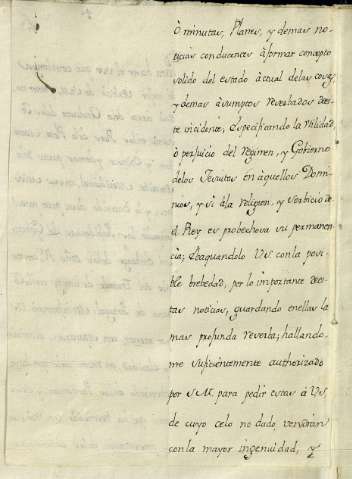 ò minutas, Planes, y demas no-
ticias conducentes à formar concepto
solido del estado àctual delas cosas,
y demas àsumptos reserbados dees-
te incidente, especificando la utilidad,
ò perjuicio del regimen, y Gobierno
delos Jesuitas en àquellos Domi-
nios, y si àla religion, y serbicio de
el Rey es probechosa su permanen-
cia; Ebaquandolo VS con la posi-
ble brebedad, por lo importante dees-
tas noticias, guardando enellas la
mas profunda reserba; hallando-
me suficientemente authorizado
por S.M. para pedir estas à VS
de cuyo celo no dudo, vendràn
con la mayor ingenuidad, y